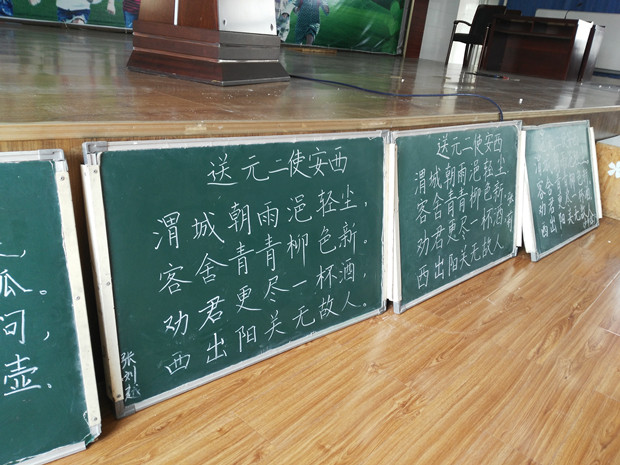 瓜。
问，
壶.
送元二使安西
渭城朝雨浥轻尘，
客舍青青柳色新。
劝君更尽一杯酒，
西出阳关无故人。
张刘越
送元二使安西
渭城朝雨浥轻尘
客舍青青柳色新
劝君更尽一杯酒
西出阳关无故人
客舍青青柳
劝君更尽
西出阳关无故